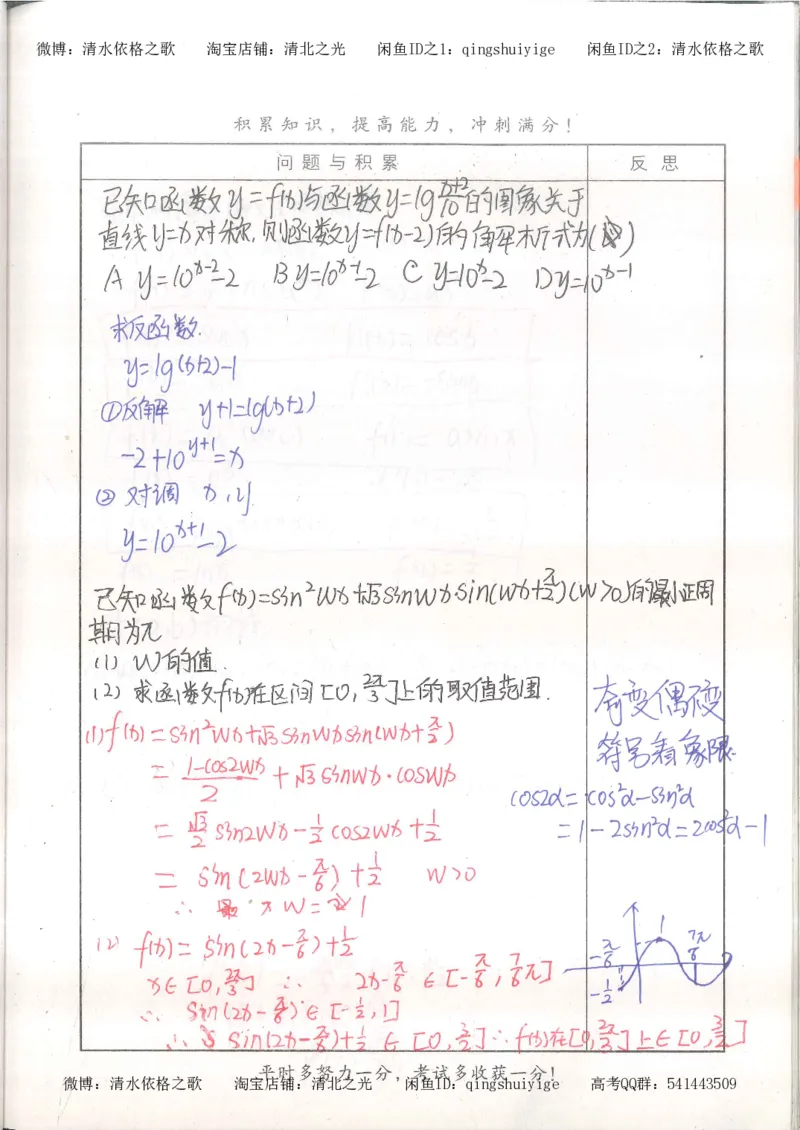 微博：清水依格之歌 淘宝店铺：清北之光 闲鱼ID之1：qingshuiyige 闲鱼ID之2：清水依格之歌
积累知识，提高能力，冲刺满分！
问题与积累 反思
已知函数y=f(x)与函数y=lg (x+2)/10 的图象关于
直线y=x对称,则函数y=f(x-2)的解析式为( )
A y=10^(x-2)-2 B y=10^(x-1)-2 C y=10^x-2 D y=10^(x-1)
求反函数.
y=lg(x+2)-1
①反解 y+1=lg(x+2)
-2+10^(y+1)=x
② 对调 x,y
y=10^(x+1)-2
已知函数f(x)=sin²wx+√3sinwx·sin(wx+π/2)(w>0)的最小正周
期为π
(1) w的值.
(2) 求函数f(x)在区间[0, 2π/3]上的取值范围.
(1)f(x)=sin²wx+√3sinwxsin(wx+π/2)
= (1-cos2wx)/2 + √3sinwx·coswx
= √3/2 sin2wx - 1/2 cos2wx + 1/2
= sin(2wx - π/6) + 1/2 w>0
∴ w=1
(2) f(x)=sin(2x-π/6)+1/2
x∈[0, 2π/3] ∴ 2x-π/6 ∈[-π/6, 7/6π]
∴ sin(2x-π/6)∈[-1/2,1]
∴ sin(2x-π/6)+1/2 ∈[0, 3/2]∴f(x)在[0, 2π/3]上∈[0, 3/2]
奇变偶不变
符号看象限.
cos2α=cos²α-sin²α
=1-2sin²α=2cos²α-1
1
-π/6
7π/6
-1/2
平时多努力一分，考试多收获一分！
微博：清水依格之歌 淘宝店铺：清北之光 闲鱼ID：qingshuiyige 高考QQ群：541443509